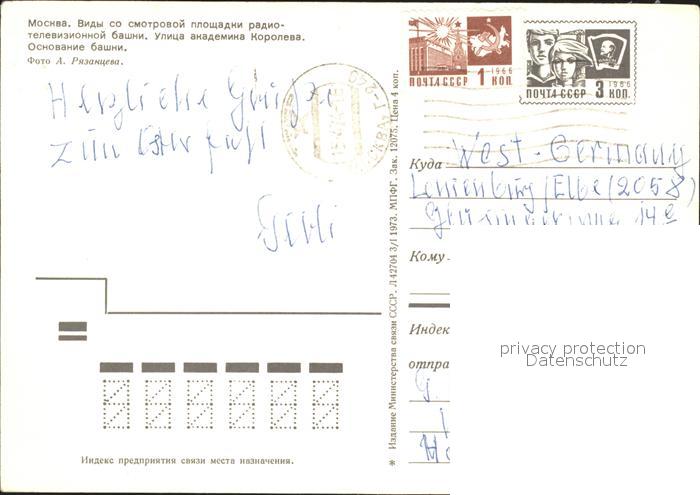 Москва. Виды со смотровой площадки радио-
телевизионной башни. Улица академика Королева.
Основание башни.
Фото А. Рязанцева.
Herzliche Grüße
zum
ПОЧТА СССР 1 1966 КОП.
ПОЧТА СССР 3 1966 КОП.
МОСКВА
Куда West-Germany
/Elbe (2058)
14e
Кому
Индек
отпра
privacy protection
Datenschutz
* Издание Министерства связи СССР. Л 42704 3/I 1973. МПФГ. Зак. 12075. Цена 4 коп.
Индекс предприятия связи места назначения.